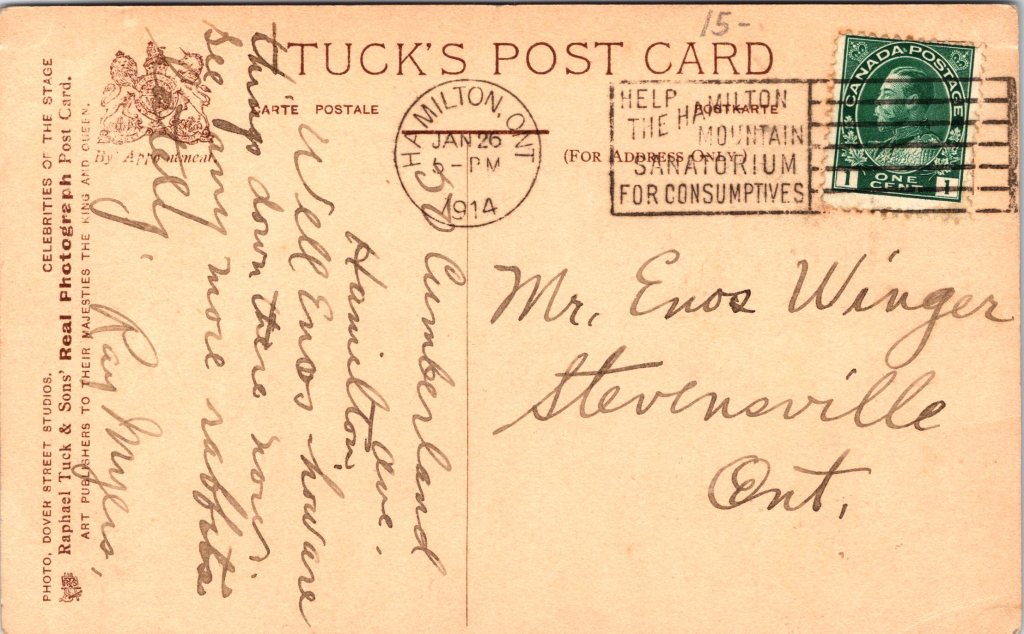 15-
TUCK'S POST CARD
CARTE POSTALE
POSTKARTE
(FOR ADDRESS ONLY.)
By Appointment
HAMILTON, ONT
JAN 26
5-PM
1914
HELP HAMILTON
THE MOUNTAIN
SANATORIUM
FOR CONSUMPTIVES
CANADA POSTAGE
1 ONE CENT 1
Mr. Enos Winger
Stevensville
Ont.
Cumberland
ave.
Hamilton
Well Enos how are
things down there now.
See any more rabbits
Ray Myers,
CELEBRITIES OF THE STAGE
PHOTO, DOVER STREET STUDIOS.
Raphael Tuck & Sons' Real Photograph Post Card.
ART PUBLISHERS TO THEIR MAJESTIES THE KING AND QUEEN.